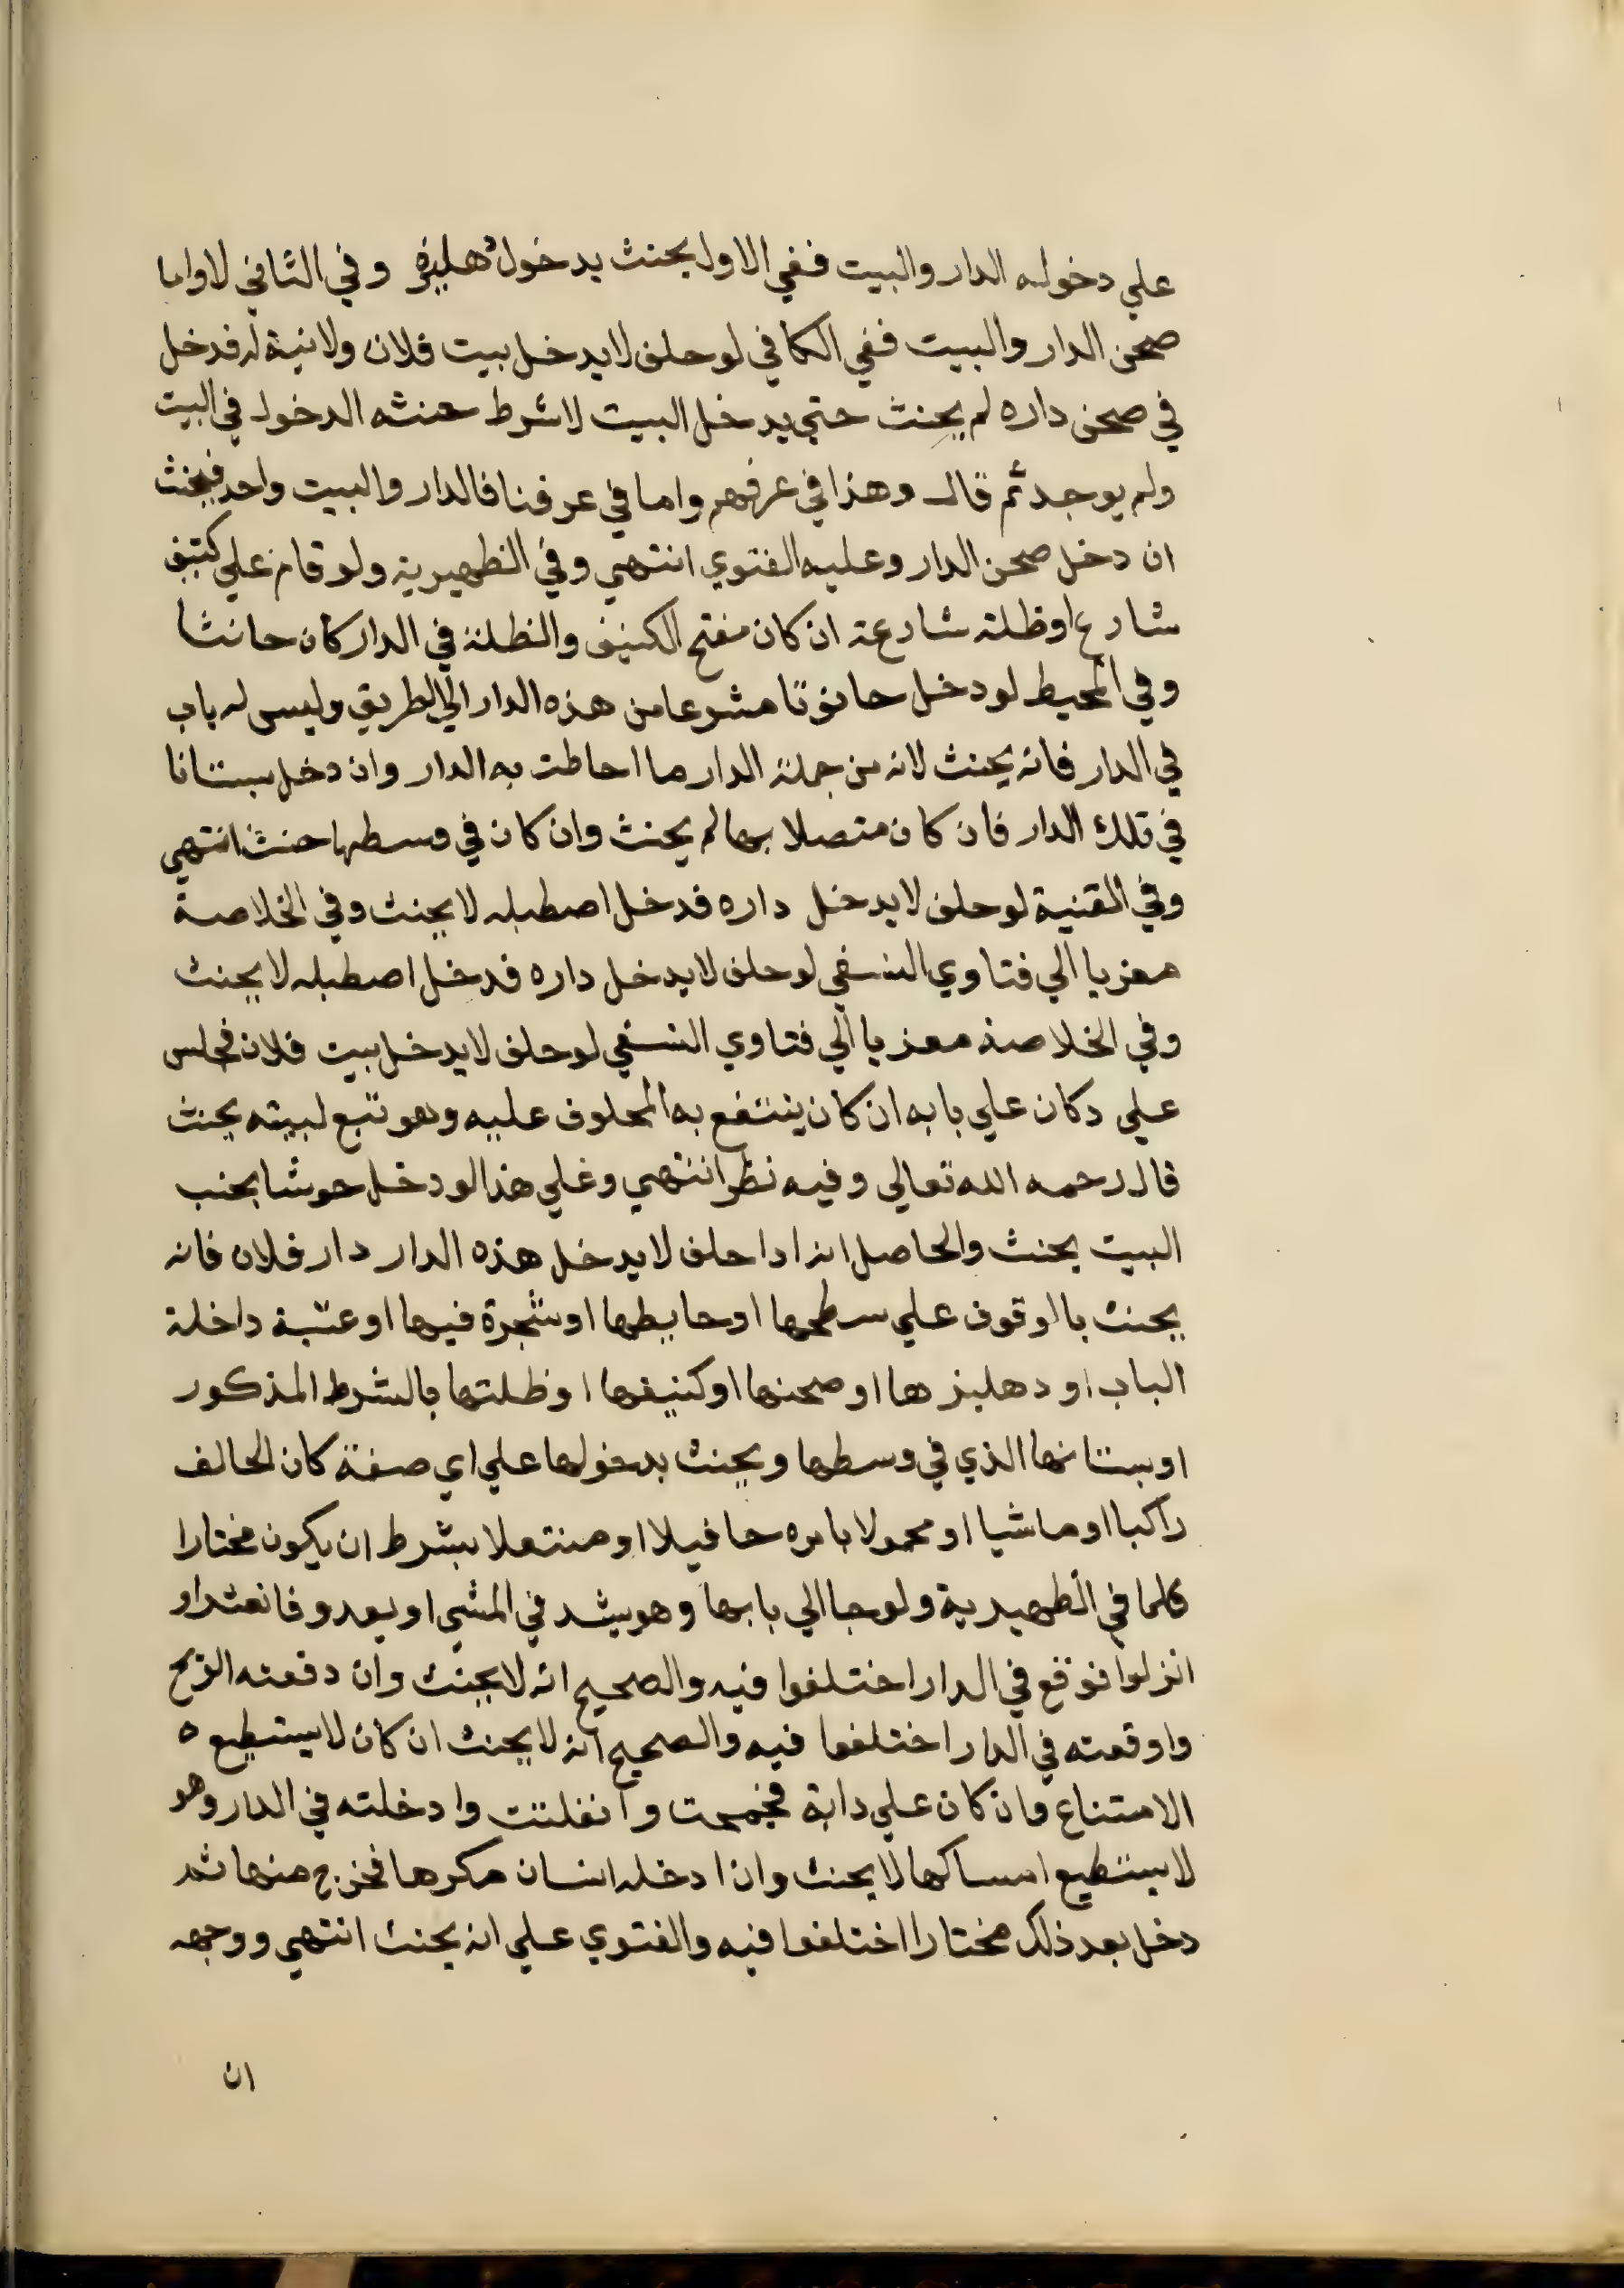 علي دخوله الدار والبيت ففي الاول يحنث بدخول دهليزه وفي الثاني لا واما
صحن الدار والبيت ففي الكافي لو حلف لا يدخل بيت فلان ولا نية له فدخل
في صحن داره لم يحنث حتي يدخل البيت لا شرط حنثه الدخول في البيت
ولم يوجد ثم قال وهذا في عرفهم واما في عرفنا فالدار والبيت واحد فيحنث
ان دخل صحن الدار وعليه الفتوي انتهي وفي الظهيرية ولو قام علي كنيف
شارع او ظلة شارعة ان كان مفتح الكنيف والظلة في الدار كان حانثا
وفي المحيط لو دخل حانوتا مشرعا من هذه الدار الي الطريق وليس له باب
في الدار فانه يحنث لانه من جملة الدار ما احاطت به الدار وان دخل بستانا
في تلك الدار فان كان متصلا بها لم يحنث وان كان في وسطها حنث انتهي
وفي القنية لو حلف لا يدخل داره فدخل اصطبله لا يحنث وفي الخلاصة
معزيا الي فتاوي النسفي لو حلف لا يدخل داره فدخل اصطبله لا يحنث
وفي الخلاصة معزيا الي فتاوي النسفي لو حلف لا يدخل بيت فلان فجلس
علي دكان علي بابه ان كان ينتفع به المحلوف عليه وهو تبع لبيته يحنث
قال رحمه الله تعالي وفيه نظر انتهي وعلي هذا لو دخل حوشا بجنب
البيت يحنث والحاصل انه اذا حلف لا يدخل هذه الدار دار فلان فانه
يحنث بالوقوف علي سطحها او حايطها او شجرة فيها او عتبة داخلة
الباب او دهليزها او صحنها او كنيفها او ظلتها بالشرط المذكور
او بستانها الذي في وسطها ويحنث بدخولها علي اي صفة كان الحالف
راكبا او ماشيا او محمولا بامره حافيلا او منتعلا بشرط ان يكون مختارا
كلما في الظهيرية ولو جا الي بابها وهو يشد في المشي او يعدو فانعثر او
انزلوا فوقع في الدار اختلفوا فيه والصحيح انه لا يحنث وان دفعته الريح
واوقعته في الدار اختلفوا فيه والصحيح انه لا يحنث ان كان لا يستطيع ه
الامتناع وان كان علي دابة فجمحت وانفلتت وادخلته في الدار وهو
لا يستطيع امساكها لا يحنث وان ادخله انسان مكرها فخرج منها ثم
دخل بعد ذلك مختارا اختلفوا فيه والفتوي علي انه يحنث انتهي ووجهه
ان